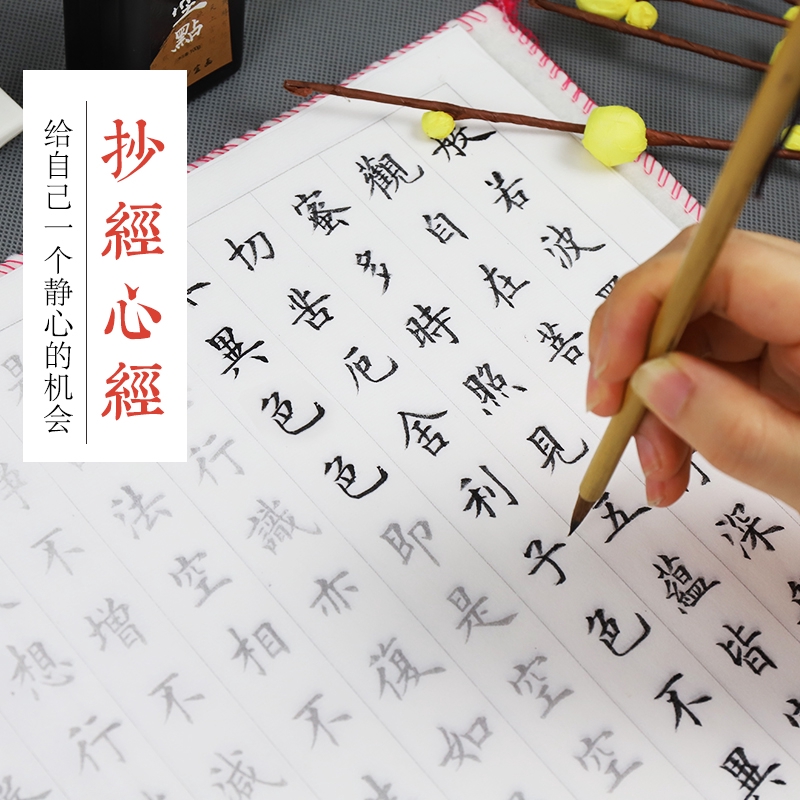 抄經心經
给自己一个静心的机会
般若波
觀自在菩 行深
蜜多時照見五蘊皆
切苦厄舍利子色不異
不異色色即是空空
行識亦復如
法空相不
不增不減
想行